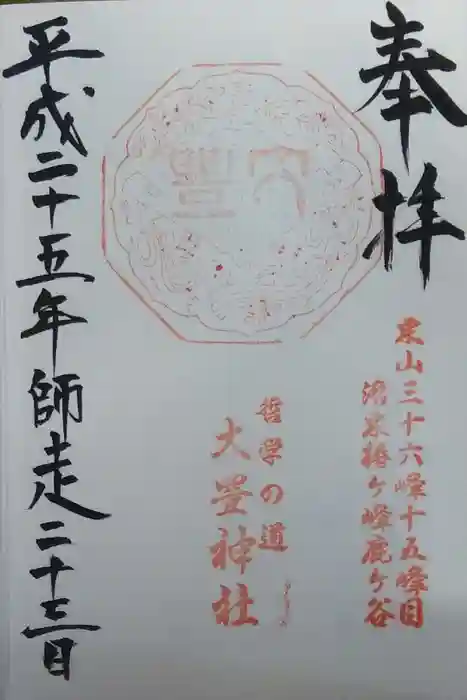 奉拝
東山三十六峰十五峰目
洛東椿ヶ峰鹿ヶ谷
大豐
哲学の道
大豊神社
平成二十五年師走二十三日